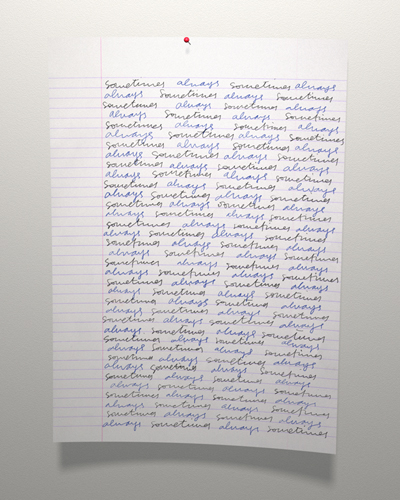 sometimes always sometimes always
always sometimes always sometimes
sometimes always sometimes always
always sometimes always sometimes
sometimes always sometimes always
always sometimes always sometimes
sometimes always sometimes always
always sometimes always sometimes
sometimes always sometimes always
always sometimes always sometimes
sometimes always sometimes always
always sometimes always sometimes
sometimes always sometimes always
always sometimes always sometimes
sometimes always sometimes always
always sometimes always sometimes
sometimes always sometimes always
always sometimes always sometimes
sometimes always sometimes always
always sometimes always sometimes
sometimes always sometimes always
always sometimes always sometimes
sometimes always sometimes always
always sometimes always sometimes
sometimes always sometimes always
always sometimes always sometimes
sometimes always sometimes always
always sometimes always sometimes
sometimes always sometimes always
always sometimes always sometimes
sometimes always sometimes always
always sometimes always sometimes
sometimes always sometimes always
always sometimes always sometimes
sometimes always sometimes always
always sometimes always sometimes